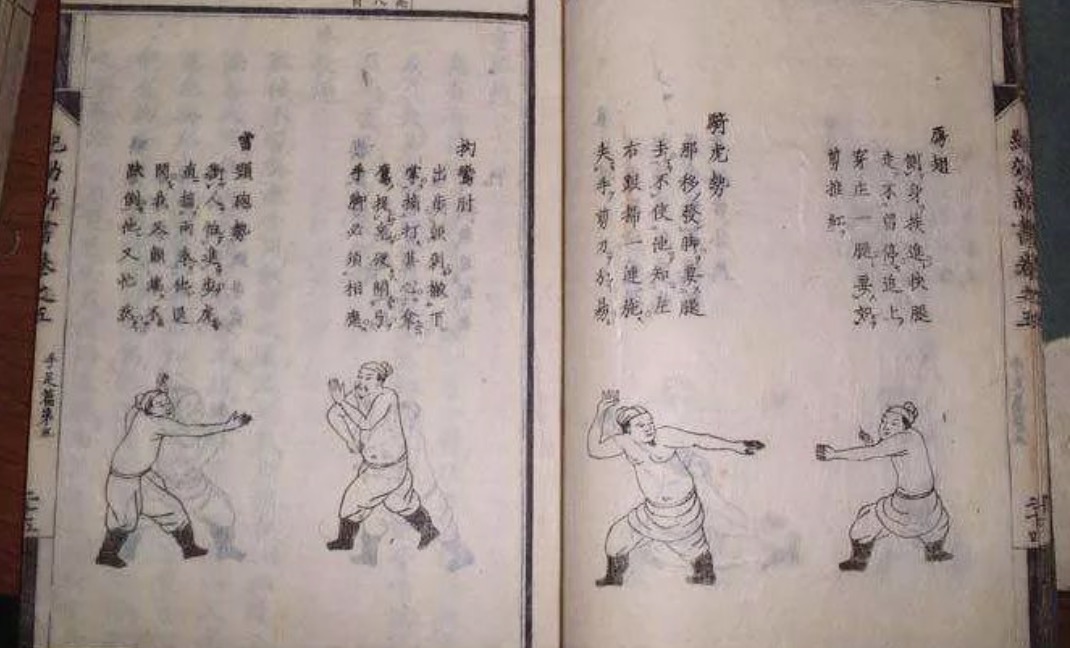 紀効新書卷之五
鴈翅
側身挨進快腿
走不留停追上
穿庄一腿要加
剪推紅
騎虎勢
那移發脚要腿
去不使他知左
右跟掃一連施
失手剪刀分易
拗鸞肘
出步顛剁搬下
掌摘打其心拿
鷹捉兔硬開弓
手脚必須相應
當頭砲勢
衝人怕進步虎
直攛兩拳他退
閃我又顛踹不
跌倒他又忙
紀効新書卷之五
手足篇第五
二十五